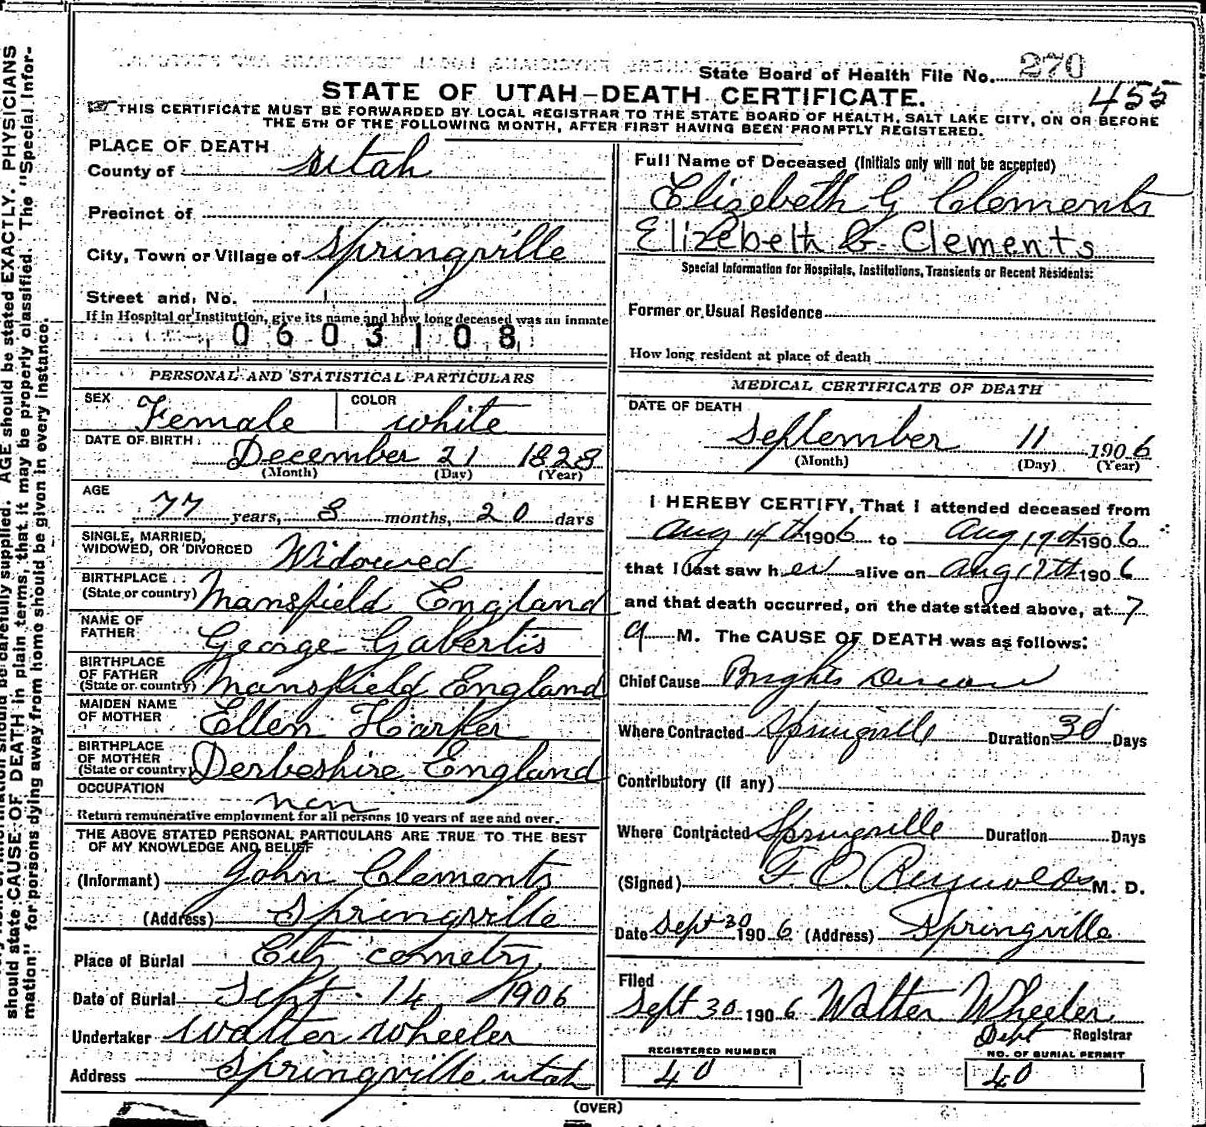 should state CAUSE OF DEATH in plain terms, that it may be properly classified. The "Special Infor-
mation" for persons dying away from home should be given in every instance.
State Board of Health File No. 270
455
STATE OF UTAH—DEATH CERTIFICATE.
THIS CERTIFICATE MUST BE FORWARDED BY LOCAL REGISTRAR TO THE STATE BOARD OF HEALTH, SALT LAKE CITY, ON OR BEFORE
THE 5TH OF THE FOLLOWING MONTH, AFTER FIRST HAVING BEEN PROMPTLY REGISTERED.
PLACE OF DEATH
County of Utah
Precinct of
City, Town or Village of Springville
Street and No.
If in Hospital or Institution, give its name and how long deceased was an inmate
0603108
PERSONAL AND STATISTICAL PARTICULARS
SEX Female COLOR white
DATE OF BIRTH
December 21 1828
(Month) (Day) (Year)
AGE
77 years, 8 months, 20 days
SINGLE, MARRIED,
WIDOWED, OR DIVORCED Widowed
BIRTHPLACE
(State or country) Mansfield England
NAME OF
FATHER George Gabertis
BIRTHPLACE
OF FATHER
(State or country) Mansfield England
MAIDEN NAME
OF MOTHER Ellen Harper
BIRTHPLACE
OF MOTHER
(State or country) Derbeshire England
OCCUPATION
non
Return remunerative employment for all persons 10 years of age and over.
THE ABOVE STATED PERSONAL PARTICULARS ARE TRUE TO THE BEST
OF MY KNOWLEDGE AND BELIEF
(Informant) John Clements
(Address) Springville
Place of Burial City cemetry
Date of Burial Sept. 14 1906
Undertaker Walter Wheeler
Address Springville utah
Full Name of Deceased (Initials only will not be accepted)
Elizebeth G Clements
Elizebeth G. Clements
Special Information for Hospitals, Institutions, Transients or Recent Residents:
Former or Usual Residence
How long resident at place of death
MEDICAL CERTIFICATE OF DEATH
DATE OF DEATH
September 11 1906
(Month) (Day) (Year)
I HEREBY CERTIFY, That I attended deceased from
Aug 14th 1906 to Aug 19th 1906
that I last saw her alive on Aug 17th 1906
and that death occurred, on the date stated above, at 7
a M. The CAUSE OF DEATH was as follows:
Chief Cause Brights Disease
Where Contracted Springville Duration 30 Days
Contributory (if any)
Where Contracted Springville Duration Days
(Signed) F. O. Reynolds M. D.
Date Sept 30 1906 (Address) Springville
Filed
Sept 30 1906 Walter Wheeler
Dept Registrar
REGISTERED NUMBER
40
NO. OF BURIAL PERMIT
40
(OVER)